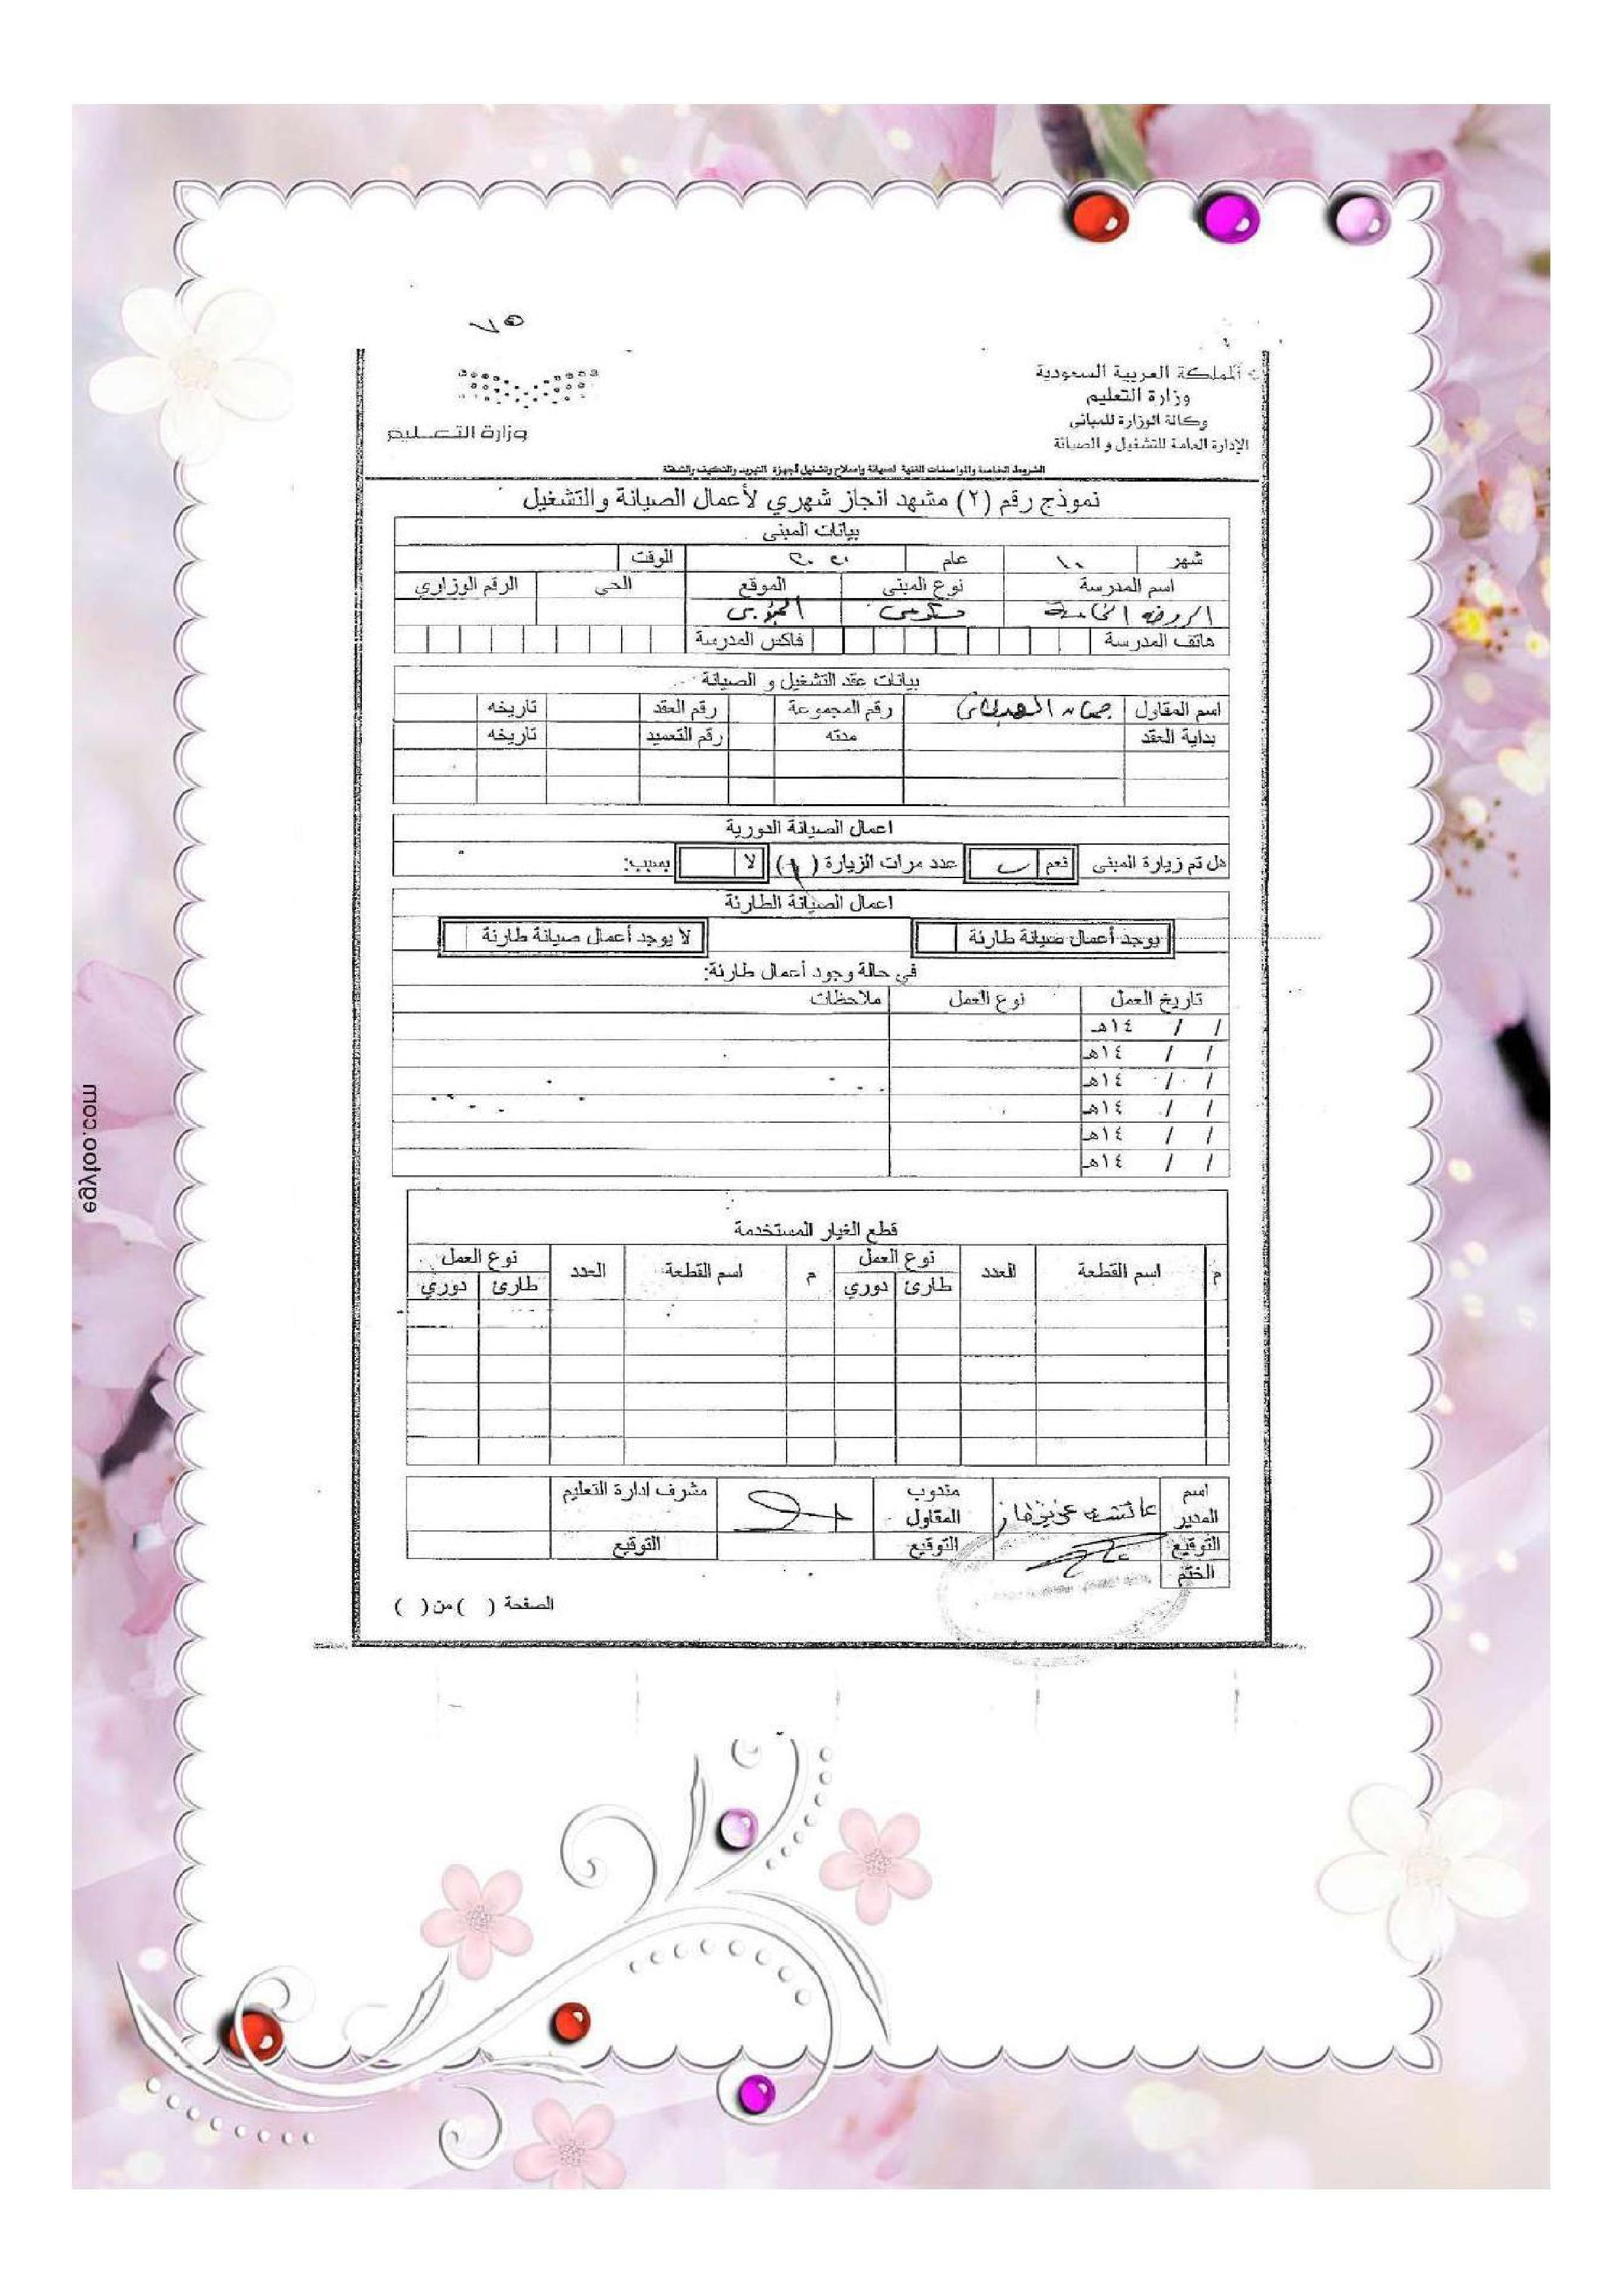 ٧٥
المملكة العربية السعودية
وزارة التعليم
وكالة الوزارة للمباني
الإدارة العامة للتشغيل و الصيانة
وزارة التعـــليم
الشروط الخاصة والمواصفات الفنية لصيانة وإصلاح وتشغيل أجهزة التبريد والتكييف والشفط
نموذج رقم (٢) مشهد انجاز شهري لأعمال الصيانة والتشغيل
بيانات المبنى
شهر ١٠ عام ٢٠٢٠ الوقت
اسم المدرسة نوع المبنى الموقع الحي الرقم الوزاري
الروضة الخامسة حكومي الجنوبي
هاتف المدرسة فاكس المدرسة
بيانات عقد التشغيل و الصيانة
اسم المقاول رقم المجموعة رقم العقد تاريخه
بداية العقد مدته رقم التعميد تاريخه
اعمال الصيانة الدورية
هل تم زيارة المبنى نعم عدد مرات الزيارة ( ) لا بسبب:
اعمال الصيانة الطارئة
يوجد أعمال صيانة طارئة لا يوجد أعمال صيانة طارئة
في حالة وجود أعمال طارئة:
تاريخ العمل نوع العمل ملاحظات
/ / ١٤هـ
/ / ١٤هـ
/ / ١٤هـ
/ / ١٤هـ
/ / ١٤هـ
/ / ١٤هـ
قطع الغيار المستخدمة
م اسم القطعة العدد نوع العمل م اسم القطعة العدد نوع العمل
طارئ دوري طارئ دوري
اسم المدير عائشه مندوب المقاول مشرف ادارة التعليم
التوقيع التوقيع التوقيع
الختم
الصفحة ( ) من ( )
egyfoo.com